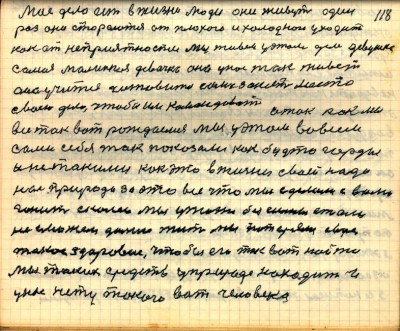 Мое дело ест в жизни люди они живут один 118
раз они стораются от плохого и холодного уходит
как от неприятности мы живем у этом деле девушка
самая маленкая девачка она уже так живет
она учится готовит займет место
своем деле чтобы им командовать а так как мы
все так вот рождаемся мы у этом во всем
сами себя так показали как будто горды
а не такими как это в жизни своей надо
нам Природа за это все что мы сделали с вами
гонит мы у жизни бы стали
не сможем далше жить мы потеряли свое
такое здоровие, чтобы его так вот найти
мы таких средств у природе находит и
уже нету такого вот человека